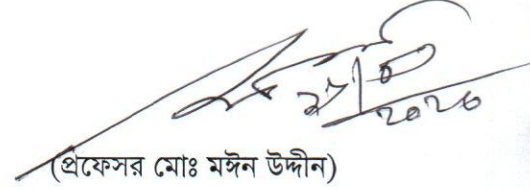 ২০২০
(প্রফেসর মোঃ মঈন উদ্দীন)